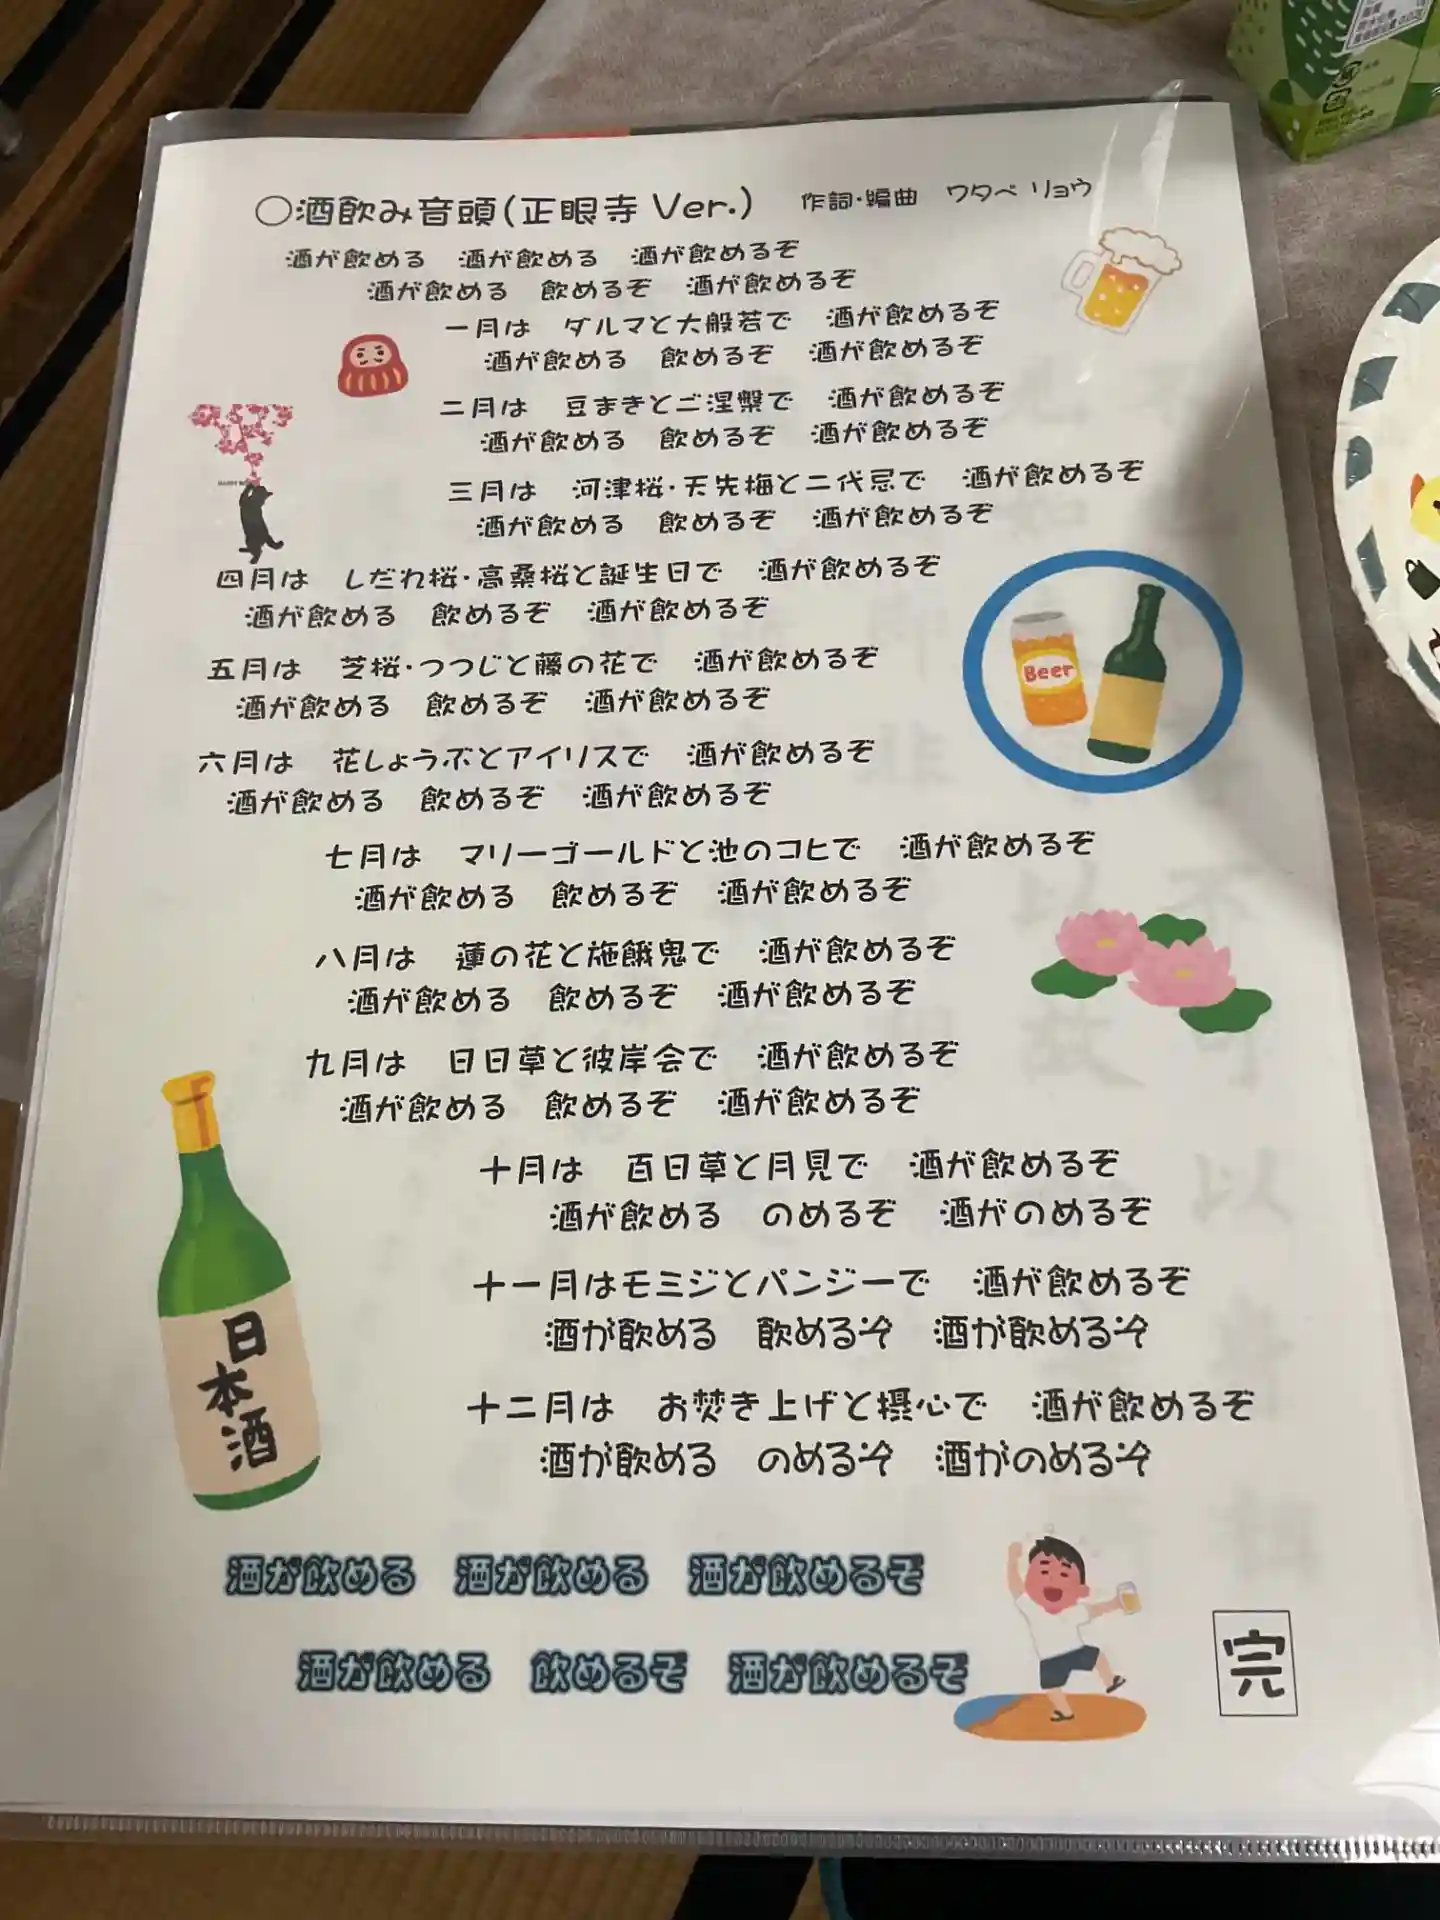 〇酒飲み音頭(正眼寺 Ver.)　作詞・編曲　ワタベ リョウ
酒が飲める　酒が飲める　酒が飲めるぞ
酒が飲める　飲めるぞ　酒が飲めるぞ
一月は　ダルマと大般若で　酒が飲めるぞ
酒が飲める　飲めるぞ　酒が飲めるぞ
二月は　豆まきとご涅槃で　酒が飲めるぞ
酒が飲める　飲めるぞ　酒が飲めるぞ
三月は　河津桜・天先梅と二代忌で　酒が飲めるぞ
酒が飲める　飲めるぞ　酒が飲めるぞ
四月は　しだれ桜・高桑桜と誕生日で　酒が飲めるぞ
酒が飲める　飲めるぞ　酒が飲めるぞ
五月は　芝桜・つつじと藤の花で　酒が飲めるぞ
酒が飲める　飲めるぞ　酒が飲めるぞ
Beer
六月は　花しょうぶとアイリスで　酒が飲めるぞ
酒が飲める　飲めるぞ　酒が飲めるぞ
七月は　マリーゴールドと池のコヒで　酒が飲めるぞ
酒が飲める　飲めるぞ　酒が飲めるぞ
八月は　蓮の花と施餓鬼で　酒が飲めるぞ
酒が飲める　飲めるぞ　酒が飲めるぞ
九月は　日日草と彼岸会で　酒が飲めるぞ
酒が飲める　飲めるぞ　酒が飲めるぞ
十月は　百日草と月見で　酒が飲めるぞ
酒が飲める　のめるぞ　酒がのめるぞ
十一月はモミジとパンジーで　酒が飲めるぞ
酒が飲める　飲めるぞ　酒が飲めるぞ
十二月は　お焚き上げと摂心で　酒が飲めるぞ
酒が飲める　のめるぞ　酒がのめるぞ
日本酒
酒が飲める　酒が飲める　酒が飲めるぞ
酒が飲める　飲めるぞ　酒が飲めるぞ
完